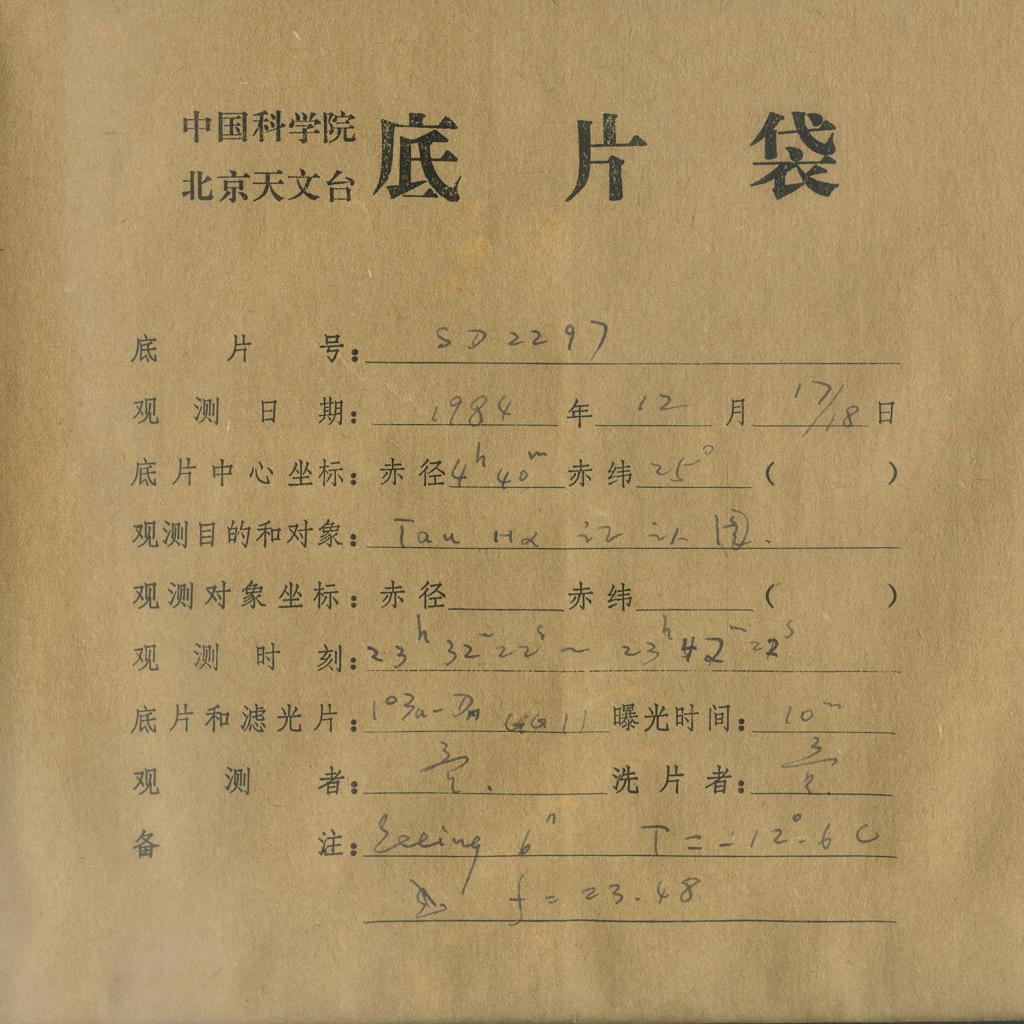 中国科学院
北京天文台 底片袋
底片号: SD2297
观测日期: 1984 年 12 月 17/18 日
底片中心坐标: 赤径 4h 40m 赤纬 25° ( )
观测目的和对象: Tau Hα 证认图.
观测对象坐标: 赤径 赤纬 ( )
观测时刻: 23h 32m 22s ~ 23h 42m 22s
底片和滤光片: 103a-D GG11 曝光时间: 10m
观测者:
洗片者:
备注: Seeing 6" T = -12°.6 C
f = 23.48